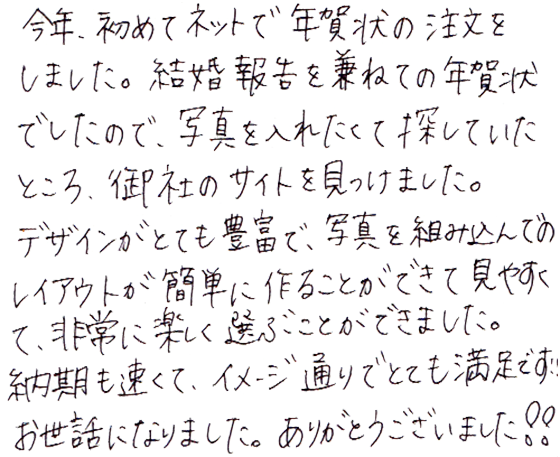 今年、初めてネットで年賀状の注文を
しました。結婚報告を兼ねての年賀状
でしたので、写真を入れたくて探していた
ところ、御社のサイトを見つけました。
デザインがとても豊富で、写真を組み込んでの
レイアウトが簡単に作ることができて見やすく
て、非常に楽しく選ぶことができました。
納期も速くて、イメージ通りでとても満足です!!
お世話になりました。ありがとうございました!!